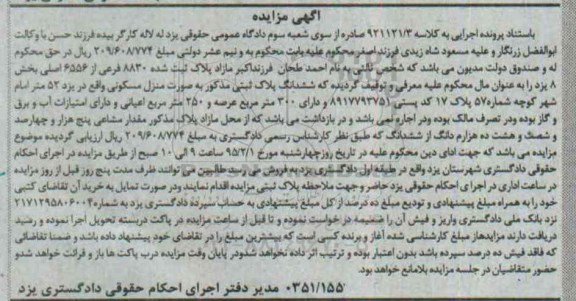 آگهی مزایده
باستناد پرونده اجرایی به کلاسه ۹۲۱۱۲۱/۳ صادره از سوی شعبه سوم دادگاه عمومی حقوقی یزد له لاله کارگر بیده فرزند حسن با وکالت
ابوالفضل زرنگار و علیه مسعود شاه زیدی فرزند اصغر محکوم علیه بابت محکوم به و نیم عشر دولتی مبلغ ۲۰۹/۶۰۸/۷۷۴ ریال در حق محکوم
له و صندوق دولت مدیون می باشد که شخص ثالثی به نام احمد طحان فرزند اکبر مازاد پلاک ثبت شده ۸۸۳۰ فرعی از ۶۵۵۶ اصلی بخش
۸ یزد را به عنوان مال محکوم علیه معرفی و توقیف گردیده که ششدانگ پلاک ثبتی مذکور به صورت منزل مسکونی واقع در یزد ۵۲ متر امام
شهر کوچه شماره ۵۷ پلاک ۱۷ کد پستی ۸۹۱۷۷۹۳۷۵۱ و دارای ۳۰۰ متر مربع عرصه و ۲۵۰ متر مربع اعیانی و دارای امتیازات آب و برق
و گاز بوده و در تصرف مالک بوده و در اجاره نمی باشد و در بازداشت می باشد که از محل مازاد پلاک مذکور مقدار مشاعی پنج هزار و چهارصد
و شصت و هشت ده هزارم دانگ از ششدانگ که طبق نظر کارشناس رسمی دادگستری به مبلغ ۲۰۹/۶۰۸/۷۷۴ ریال ارزیابی گردیده موضوع
مزایده می باشد که جهت ادای دین محکوم علیه در تاریخ روز چهارشنبه مورخ ۹۵/۲/۱ ساعت ۹ الی ۱۰ صبح از طریق مزایده در اجرای احکام
حقوقی دادگستری شهرستان یزد واقع در طبقه اول دادگستری یزد به فروش می رسد طالبین می توانند ظرف مدت پنج روز قبل از روز مزایده
در ساعت اداری در اجرای احکام حقوقی یزد حاضر و جهت ملاحظه پلاک ثبتی مزایده اقدام نمایند و در صورت تمایل به خرید آن تقاضای کتبی
خود را به همراه مبلغ پیشنهادی و تودیع مبلغ ده درصد از کل مبلغ پیشنهادی به حساب سپرده دادگستری یزد به شماره ۲۱۷۱۲۹۵۸۰۶۰۰۴
نزد بانک ملی دادگستری واریز و فیش آن را ضمیمه درخواست نموده و تا قبل از ساعت مزایده در پاکت دربسته تحویل اجرا نموده و رسید
دریافت دارند مزایده از مبلغ کارشناسی شده آغاز و برنده کسی است که بیشترین مبلغ را در تقاضای خود پیشنهاد داده باشد و ضمنا تقاضائی
که فاقد فیش ده درصد سپرده باشد بدون اعتبار بوده و ترتیب اثر داده نخواهد شد و در پایان وقت مزایده درب پاکت ها باز و قرائت خواهد شد و
حضور متقاضیان در جلسه مزایده بلامانع خواهد بود.
۰۳۵۱/۱۵۵ مدیر دفتر اجرای احکام حقوقی دادگستری یزد